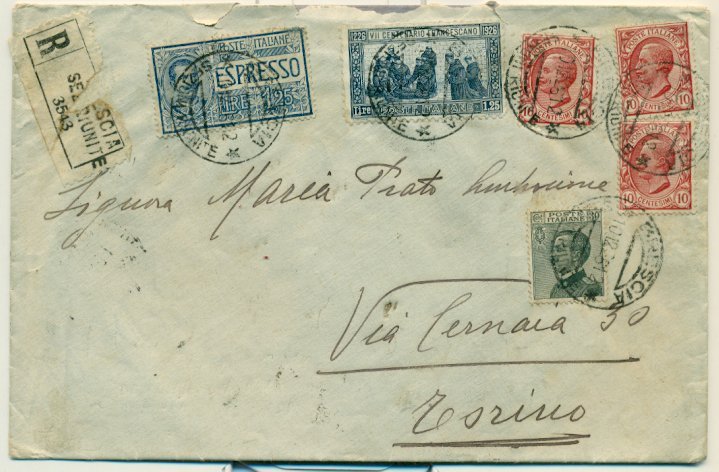 R
SCIA
SEZ RIUNITE
3543
POSTE ITALIANE
ESPRESSO
LIRE 1,25
1226 VII CENTENARIO FRANCESCANO 1926
lire POSTE ITALIANE 1,25
POSTE ITALIANE
10 CENTESIMI 10
POSTE ITALIANE
10 CENTESIMI 10
POSTE ITALIANE
10 CENTESIMI 10
Signora Maria Prato
POSTE
ITALIANE
BRESCIA
Via Cernaia 30
Torino